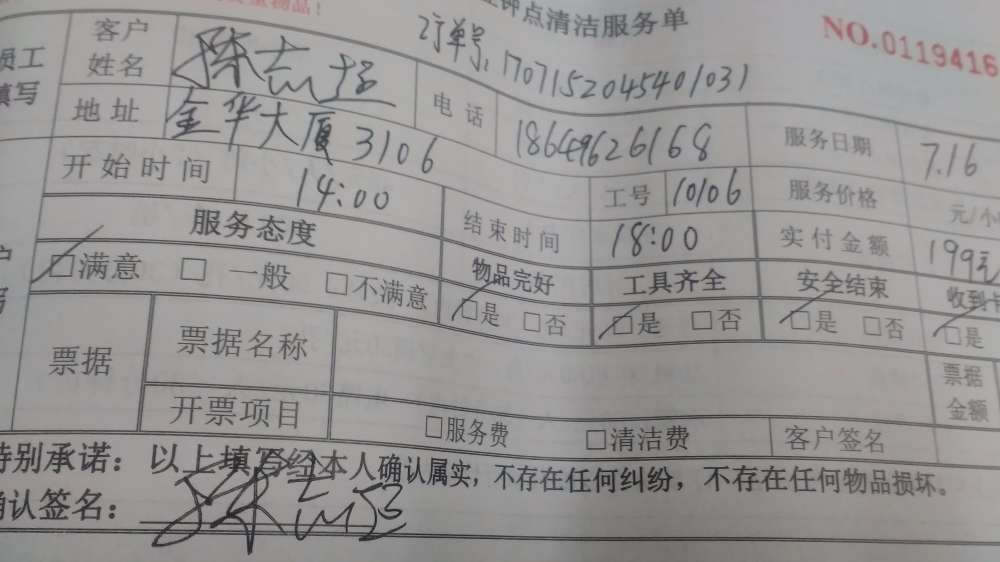 重物品！
钟点清洁服务单
NO.0119416
订单号：1707152045401031
员工
填写
客户
姓名
陈志
电话
18649626168
服务日期
7.16
地址
金华大厦3106
开始时间
14:00
工号
10106
服务价格
元/小
服务态度
结束时间
18:00
实付金额
199元
□满意 □一般 □不满意
物品完好
□是 □否
工具齐全
□是 □否
安全结束
□是 □否
收到
□是
票据
票据名称
票据
金额
开票项目
□服务费 □清洁费
客户签名
特别承诺：以上填写经本人确认属实，不存在任何纠纷，不存在任何物品损坏。
确认签名：陈志